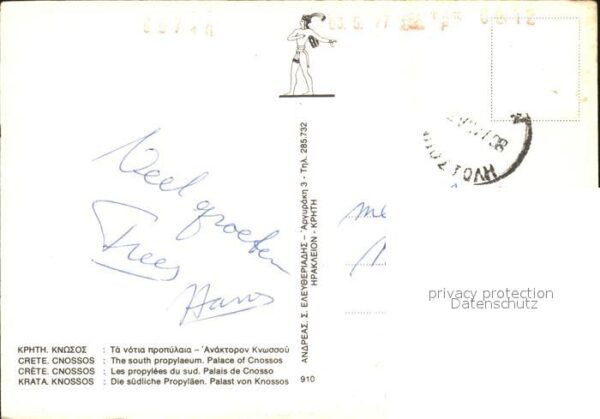 Veel groeten
Trees
Hans
ΚΡΗΤΗ. ΚΝΩΣΟΣ : Τὰ νότια προπύλαια – Ἀνάκτορον Κνωσσοῦ
CRETE. CNOSSOS : The south propylaeum. Palace of Cnossos
CRÈTE. CNOSSOS : Les propylées du sud. Palais de Cnosso
KRATA. KNOSSOS : Die südliche Propyläen. Palast von Knossos
910
ΑΝΔΡΕΑΣ. Σ. ΕΛΕΥΘΕΡΙΑΔΗΣ – Ἀργυράκη 3 - Τηλ. 285.732
ΗΡΑΚΛΕΙΟΝ - ΚΡΗΤΗ
privacy protection
Datenschutz